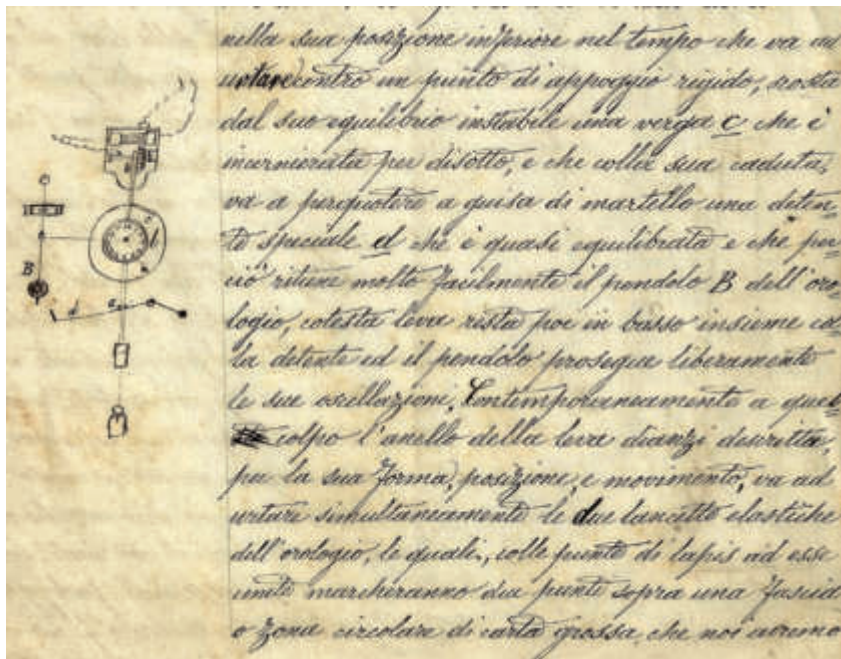 nella sua posizione inferiore nel tempo che va ad
urtare contro un punto di appoggio rigido, sposta
dal suo equilibrio instabile una verga c che è
incernierata per disotto, e che colla sua caduta,
va a perquotere a guisa di martello una deten-
te speciale d che è quasi equilibrata e che per-
ciò ritiene molto facilmente il pendolo B dell'oro-
logio, cotesta leva resta poi in basso insieme al-
la detente ed il pendolo prosegue liberamente
le sue oscillazioni. Contemporaneamente a quel
colpo l'anello della leva dianzi descritta,
per la sua forma, posizione, e movimento, va ad
urtare simultaneamente le due lancette elastiche
dell'orologio, le quali, colle punte di lapis ad esse
unite marcheranno due punti sopra una fascia
o zona circolare di carta grossa, che noi avremo
B
d
a
c